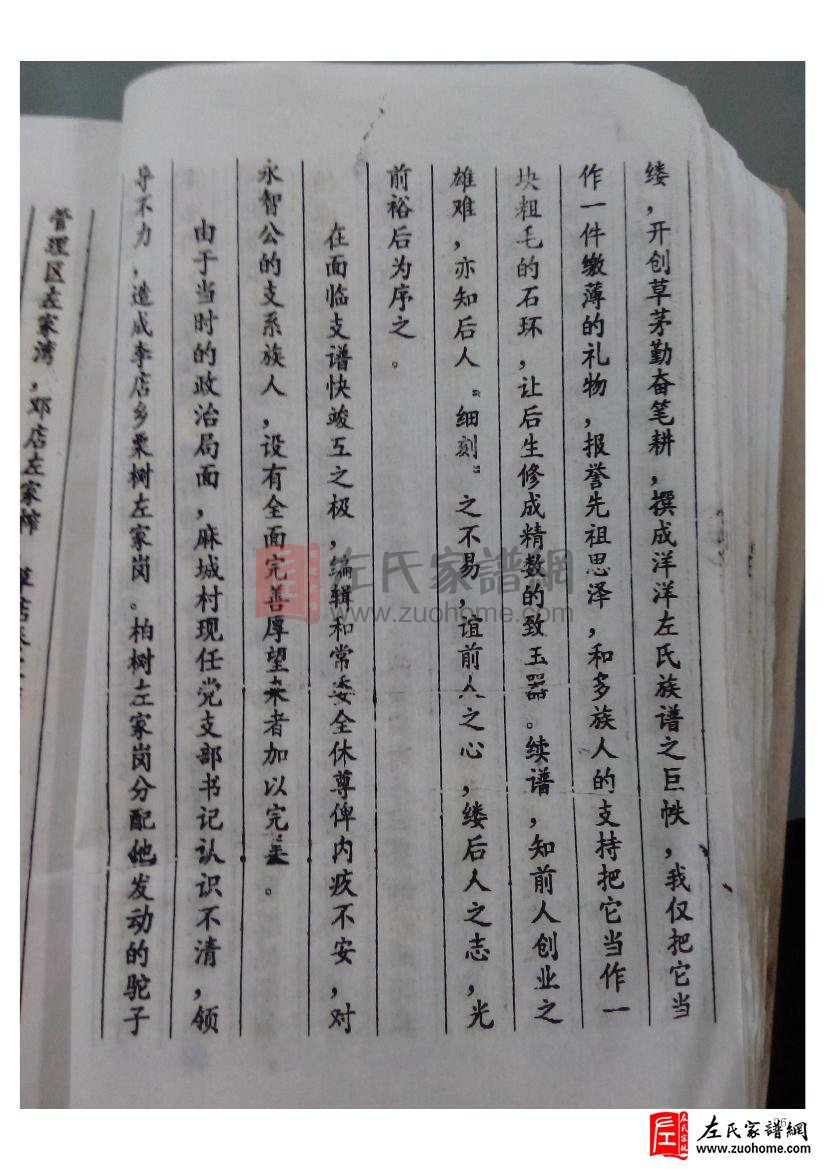 缕，开创草茅勤奋笔耕，撰成洋洋左氏族谱之巨帙，我仅把它当
作一件缴薄的礼物，报誉先祖思泽，和多族人的支持把它当作一
块粗毛的石环，让后生修成精数的致玉器。续谱，知前人创业之
雄难，亦知后人“细刻”之不易，谊前人之心，缕后人之志，光
前裕后为序之。
在面临支谱快竣互之极，编辑和常委全休尊俾内疚不安，对
永智公的支系族人，设有全面完善厚望来者加以完美。
由于当时的政治局面，麻城村现任党支部书记认识不清，领
导不力，造成李店乡栗树左家岗。柏树左家岗分配他发动的驼子
管理区左家湾，邓店左家榨
左氏家譜網
www.zuohome.com
左氏家譜網
www.zuohome.com